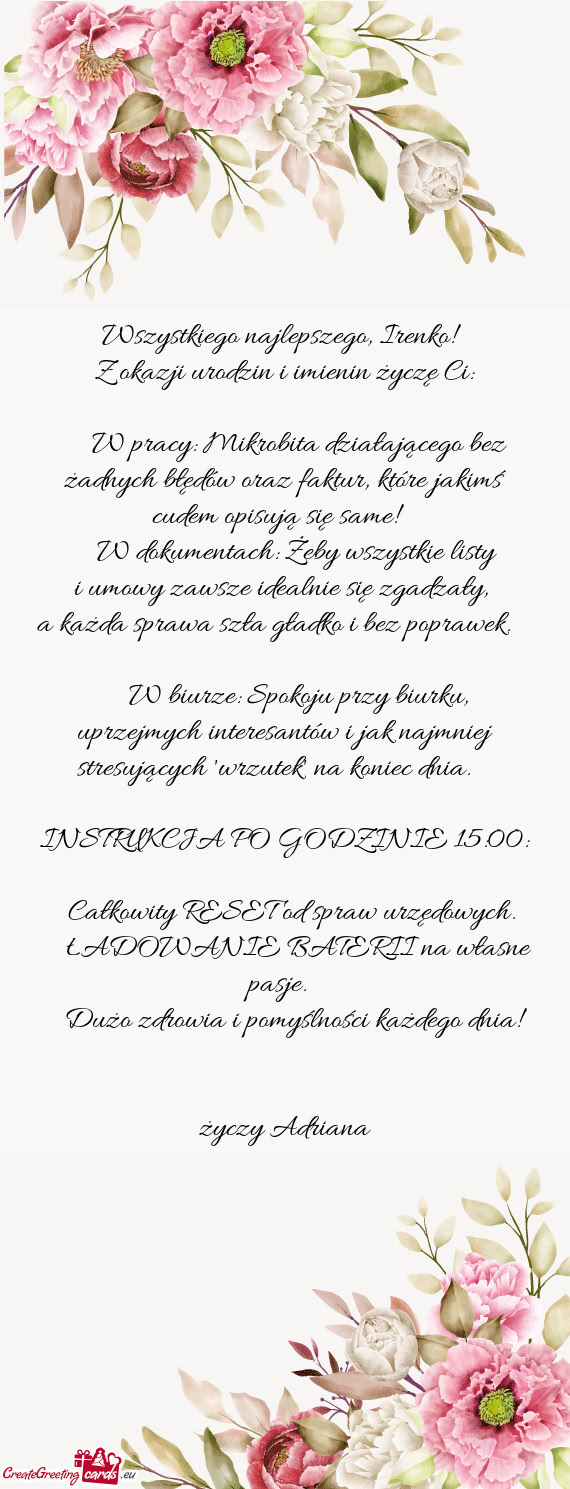 Wszystkiego najlepszego, Irenko!
Z okazji urodzin i imienin życzę Ci:
W pracy: Mikrobita działającego bez
żadnych błędów oraz faktur, które jakimś
cudem opisują się same!
W dokumentach: Żeby wszystkie listy
i umowy zawsze idealnie się zgadzały,
a każda sprawa szła gładko i bez poprawek.
W biurze: Spokoju przy biurku,
uprzejmych interesantów i jak najmniej
stresujących 'wrzutek' na koniec dnia.
INSTRUKCJA PO GODZINIE 15:00:
Całkowity RESET od spraw urzędowych.
ŁADOWANIE BATERII na własne
pasje.
Dużo zdrowia i pomyślności każdego dnia!
życzy Adriana
CreateGreeting cards .eu